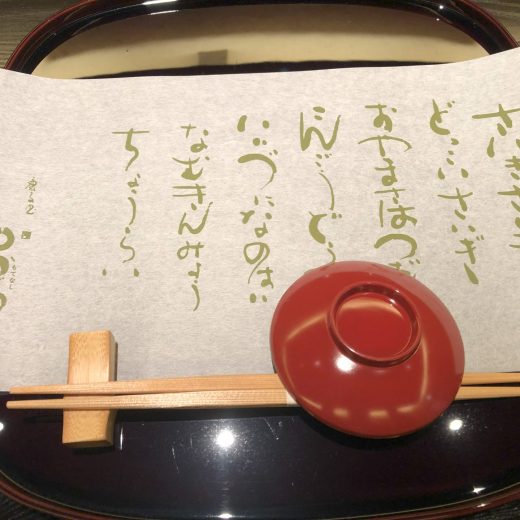 さいぎさい
どっこいさいぎ
おやまさはつ
こんごうどう
いいづになのはい
なむきんみょう
ちょうらい